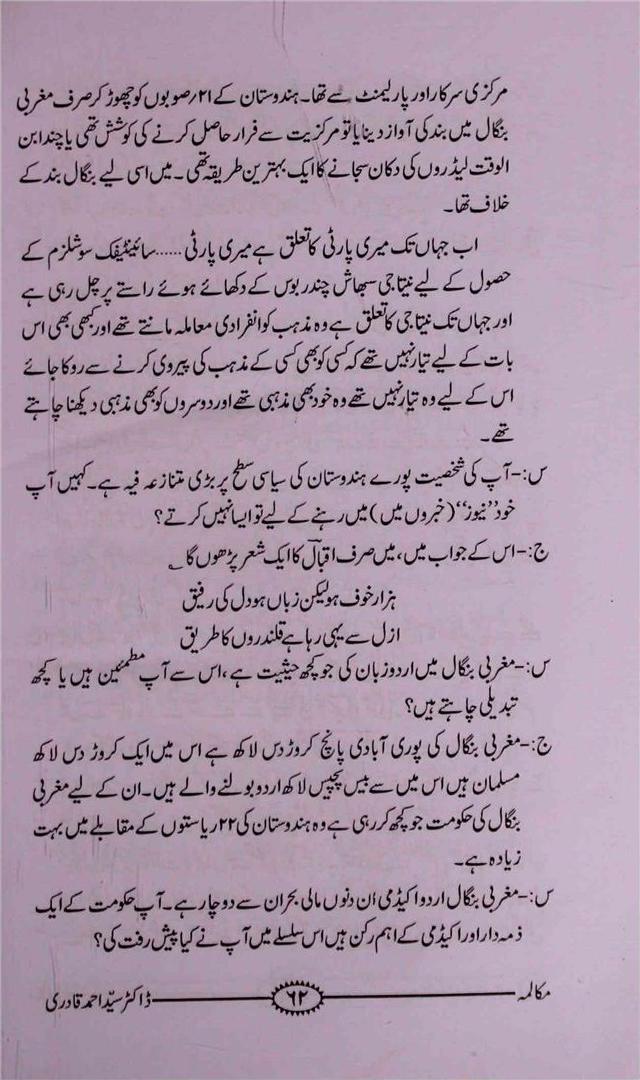 مرکزی سرکار اور پارلیمنٹ سے تھا۔ ہندوستان کے ۲۱؍صوبوں کو چھوڑ کر صرف مغربی
بنگال میں بند کی آواز دینا یا تو مرکزیت سے فرار حاصل کرنے کی کوشش تھی یا چند ابن
الوقت لیڈروں کی دکان سجانے کا ایک بہترین طریقہ تھی۔ میں اسی لیے بنگال بند کے
خلاف تھا۔
اب جہاں تک میری پارٹی کا تعلق ہے میری پارٹی ......سائینٹیفک سوشلزم کے
حصول کے لیے نیتا جی سبھاش چندر بوس کے دکھائے ہوئے راستے پر چل رہی ہے
اور جہاں تک نیتا جی کا تعلق ہے وہ مذہب کو انفرادی معاملہ مانتے تھے اور کبھی بھی اس
بات کے لیے تیار نہیں تھے کہ کسی کو بھی کسی کے مذہب کی پیروی کرنے سے روکا جائے
اس کے لیے وہ تیار نہیں تھے وہ خود بھی مذہبی تھے اور دوسروں کو بھی مذہبی دیکھنا چاہتے
تھے۔
س:- آپ کی شخصیت پورے ہندوستان کی سیاسی سطح پر بڑی متنازعہ فیہ ہے۔ کہیں آپ
خود ’’نیوز‘‘ (خبروں میں) میں رہنے کے لیے تو ایسا نہیں کرتے؟
ج:- اس کے جواب میں، میں صرف اقبالؔ کا ایک شعر پڑھوں گا ؂
ہزار خوف ہو لیکن زباں ہو دل کی رفیق
ازل سے یہی رہا ہے قلندروں کا طریق
س:- مغربی بنگال میں اردو زبان کی جو کچھ حیثیت ہے، اس سے آپ مطمئین ہیں یا کچھ
تبدیلی چاہتے ہیں؟
ج:- مغربی بنگال کی پوری آبادی پانچ کروڑ دس لاکھ ہے اس میں ایک کروڑ دس لاکھ
مسلمان ہیں اس میں سے بیس پچیس لاکھ اردو بولنے والے ہیں۔ ان کے لیے مغربی
بنگال کی حکومت جو کچھ کر رہی ہے وہ ہندوستان کی ۲۲ ریاستوں کے مقابلے میں بہت
زیادہ ہے۔
س:- مغربی بنگال اردو اکیڈمی اُن دنوں مالی بحران سے دو چار ہے۔ آپ حکومت کے ایک
ذمہ دار اور اکیڈمی کے اہم رکن ہیں اس سلسلے میں آپ نے کیا پیش رفت کی؟
مکالمہ ۶۲ ڈاکٹر سیّد احمد قادری